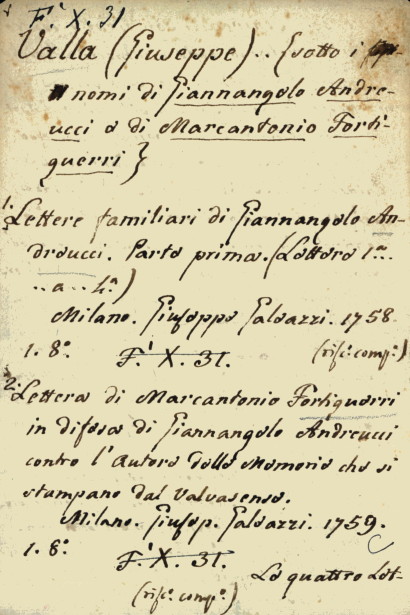 F.' X. 31
Valla (Giuseppe).. {sotto i
nomi di Giannangolo Andre-
ucci o di Marcantonio Forti-
guerri}
1. Lettere familiari di Giannangelo An-
dreucci. Parte prima. (Lettera 1.a..
..a..4.a)
Milano. Giuseppe Galeazzi. 1758
1. 8.o F.' X. 31. (rif.e comp.e)
2. Lettera di Marcantonio Fortiguerri
in difesa di Giannangelo Andreucci
contro l'Autore delle Memorie che si
stampano dal Valvasense.
Milano. Giusep. Galeazzi. 1759.
1. 8.o F.' X. 31.
(rif.e comp.e) Le quattro Let-